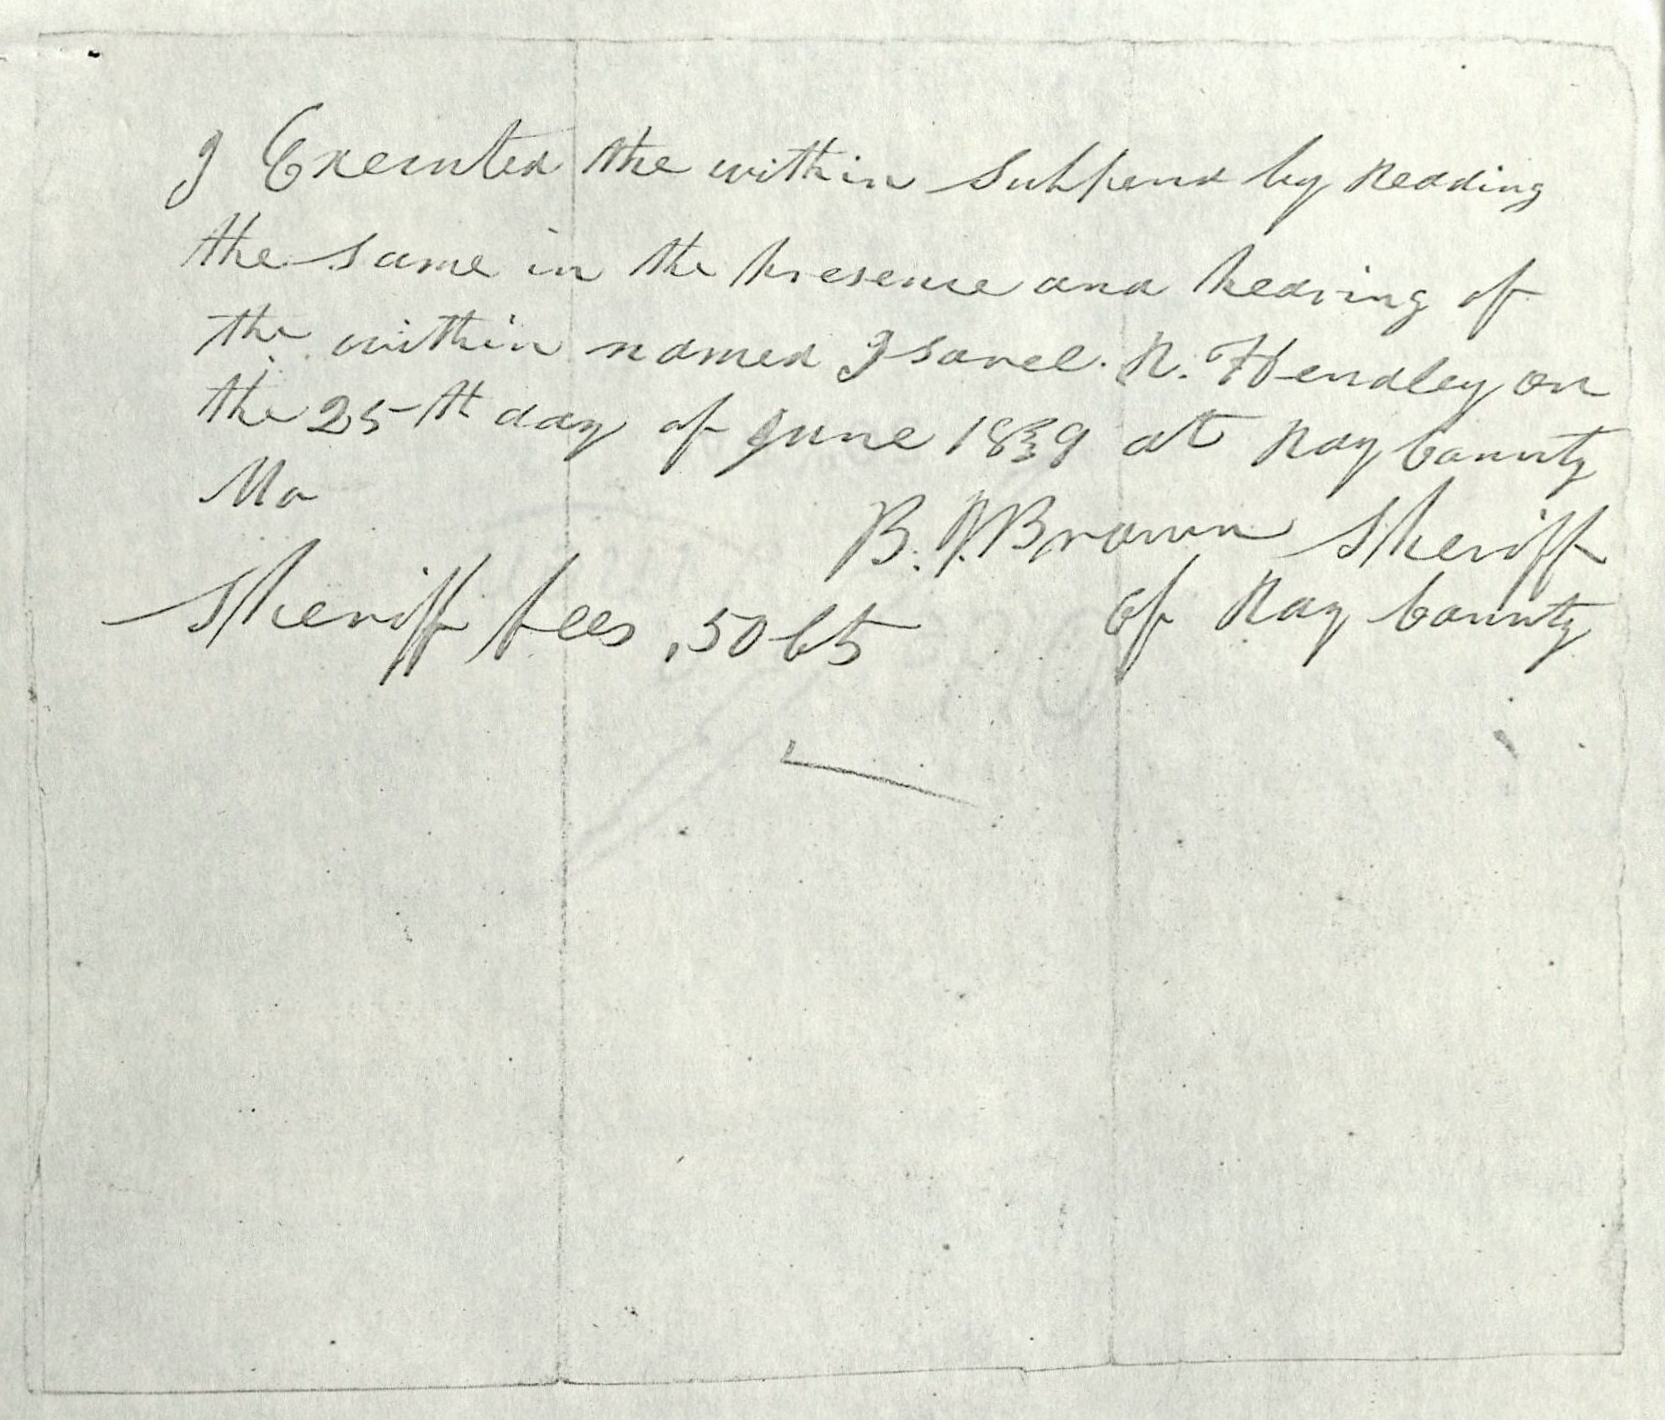 I Executed the within Subpena by Reading
the same in the presence and hearing of
the within named Israel. R. Hendley on
the 25th day of June 1839 at Ray County
Mo
B. J. Brown Sheriff
of Ray County
Sheriff fees .50 Cts